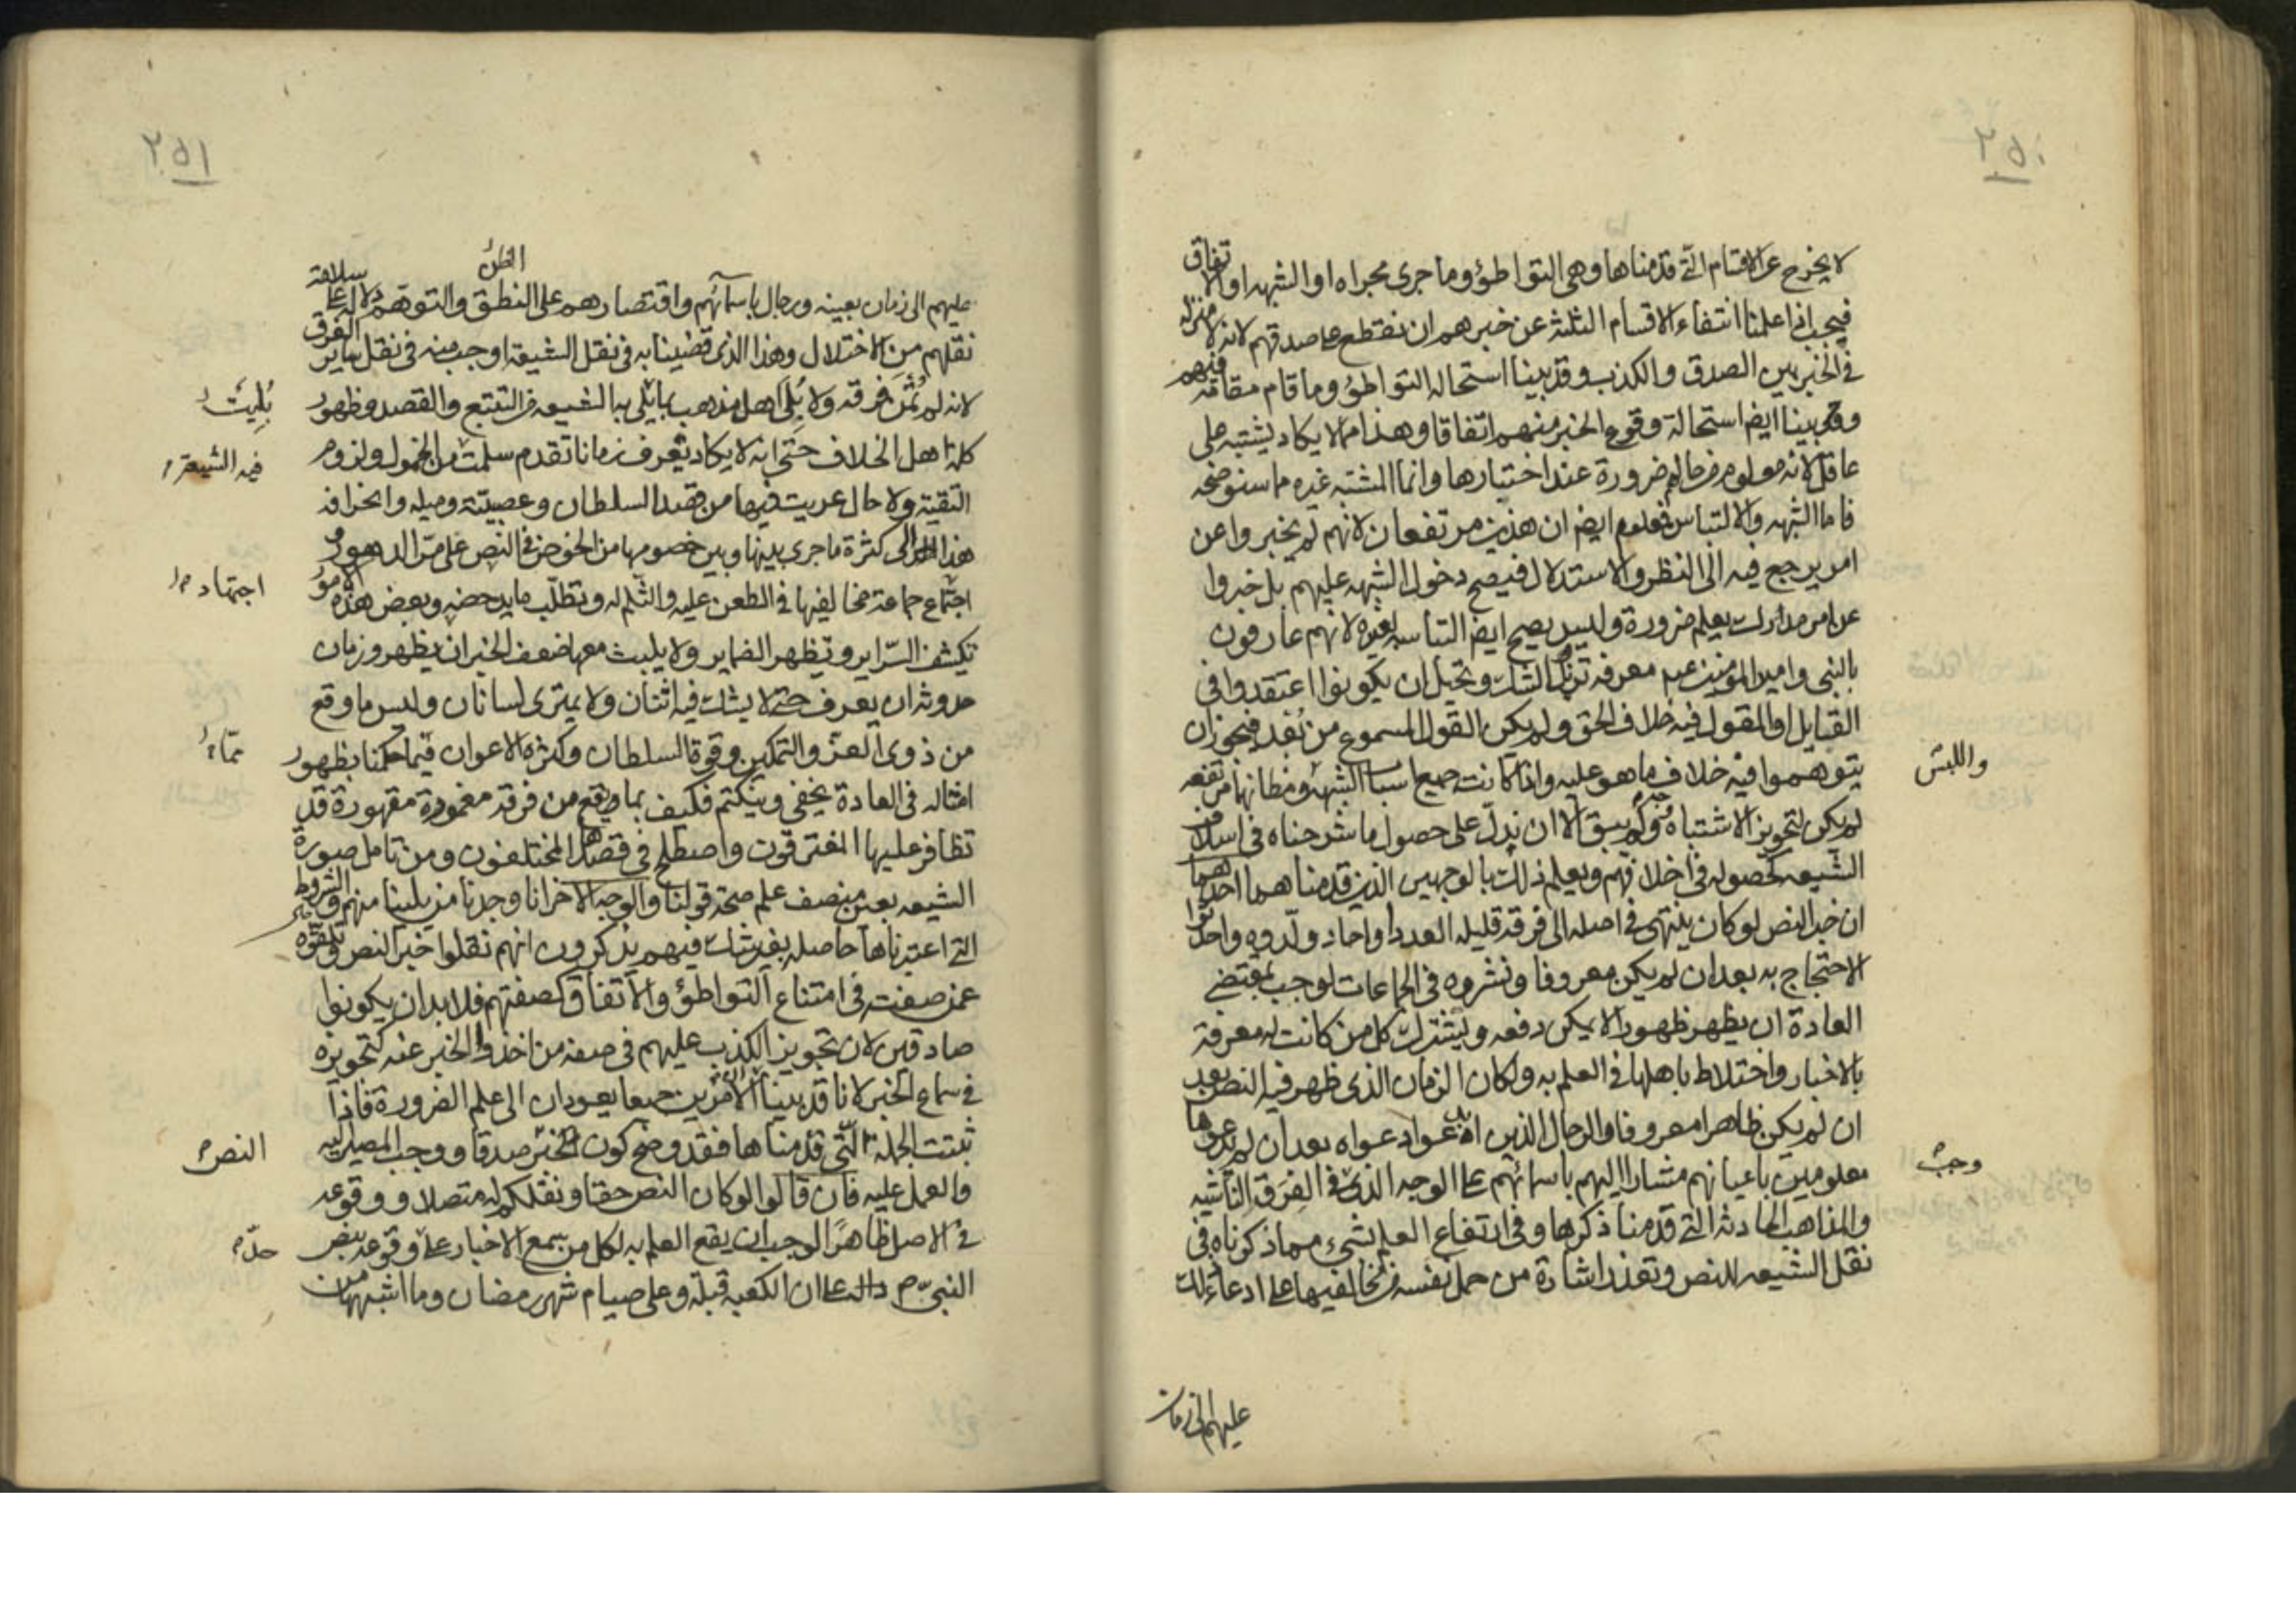 ٢٥٠
لا يخرج عن الاقسام التي قدمناها وهي التواطؤ وما جرى مجراه او الشبهه او الاتفاق
فيجب اذا علمنا انتفاء الاقسام الثلثة عن خبرهم ان نقطع على صدقهم لانه لا منزلة
في الخبر بين الصدق والكذب وقد بينا استحالة التواطؤ وما قام مقامه فيهم
وقد بينا ايضا استحالة وقوع الخبر منهم اتفاقا وهذا مما لا يكاد يشتبه على
عاقل لانه معلوم من حالهم ضرورة عند اختبارها وانما المشتبه غيره مما سنوضحه
فاما الشبهه والالتباس فمعلوم ايضا ان هذين مرتفعان لانهم لم يخبروا عن
امر يرجع فيه الى النظر والاستدلال فيصح دخول الشبهه عليهم بل خبروا
عن امر مدرك يعلم ضرورة وليس يصح ايضا التباسه بغيره لانهم عارفون
بالنبي وامير المؤمنين عم معرفه تزيل الشك وتحيل ان يكونوا اعتقدوا في
القبايل او المقول فيه خلاف الحق ولم يكن القول المسموع من بُعد فيجوز ان
يتوهموا فيه خلاف ما هو عليه واذا كانت جميع اسباب الشبهه ومظانها مرتفعه
واللبس
لم يكن لتجويز الاشتباه وجه ولم يبق الا ان ندل على حصول ما شرحناه في اسلاف
الشيعه كحصوله في اخلافهم ويعلم ذلك بالوجهين الذين قدمنا هما احدهما
ان خبر النص لو كان ينتهي في اصله الى فرقة قليله العدد او احاد ولدوه واحدثوا
الاحتجاج به بعد ان لم يكن معروفا ونشروه في الجماعات لوجب بمقتضى
العادة ان يظهر ظهورا لا يمكن دفعه ويشترك كل من كانت له معرفة
بالاخبار واختلاط باهلها في العلم به ولكان الزمان الذي ظهر فيه النص بعد
ان لم يكن ظاهرا معروفا والرجال الذين ادعوا دعواه بعد ان لم يدعوها
معلومين باعيانهم مشارا اليهم باسمائهم على الوجه الذي في الفرق الناشيه
وجب
والمذاهب الحادثه التي قدمنا ذكرها وفي ارتفاع العلم بشيء مما ذكرناه في
نقل الشيعه للنص وتعذر اشارة من حمل نفسه من مخالفيها على ادعاء ذلك
عليهم الى زمان
٢٥١
الظن
عليهم الى زمان بعينه ورجال باسمائهم واقتصارهم على النطق والتوهم دلالة على سلامة
نقلهم من الاختلال وهذا الذي قضينا به في نقل الشيعة اوجب منه في نقل ساير الفرق
لانه لم تُمْنَ فرقه ولا بُلي اهل مذهب بما بلي به الشيعه من التتبع والقصد وظهور
بُلِيَتْ
كلمة اهل الخلاف حتى انه لا يكاد يعرف زمانا تقدم سلمت من الخمول ولزوم
فيه الشيعة
التقية ولا حال عريت فيها من قصد السلطان وعصبيته وميله وانحرافه
هذا الى كثرة ما جرى بينها وبين خصومها من الخوض في النص على مر الدهور
اجتماع جماعة مخالفيها في الطعن عليه والثلم له وتطلب ما يدحضه وبعض هذه الامور
اجتهاد
تكشف السراير وتظهر الضماير ولا يلبث معها ضعف الخبر ان يظهر وزمان
حدوثه ان يعرف حتى لا يشك فيه اثنان ولا يمتري انسانان وليس ما وقع
من ذوي العز والتمكين وقوة السلطان وكثرة الاعوان فيما حكمنا بظهور
مما
امثاله في العادة يخفى وينكتم فكيف بما وقع من فرقة مغمورة مقهورة قد
تظافر عليها المفترقون واصطلح في قصدها المختلفون ومن تامل صورة
الشيعه بعين منصف علم صحة قولنا والوجه الاخر انا وجدنا من يلينا منهم والشروط
التي اعتبرناها حاصله بغير شك فيهم يذكرون انهم نقلوا خبر النص وتلقوه
عمن صفته في امتناع التواطؤ والاتفاق كصفتهم فلا بد ان يكونوا
صادقين لان تجويز الكذب عليهم في صفه من اخذوا الخبر عنه كتجويزه
في سماع الخبر لانا قد بينا ان الامرين جميعا يعودان الى علم الضرورة فاذا
ثبتت الجملة التي قدمناها فقد وضح كون الخبر صدقا ووجب المصير اليه
النص
والعمل عليه فان قالوا لو كان النص حقا ونقلكم له متصلا ووقوعه
في الاصل ظاهرا لوجب ان يقع العلم به لكل من يسمع الاخبار على وقوعه بنص
النبي ص واله على ان الكعبه قبلة وعلى صيام شهر رمضان وما اشبههما من